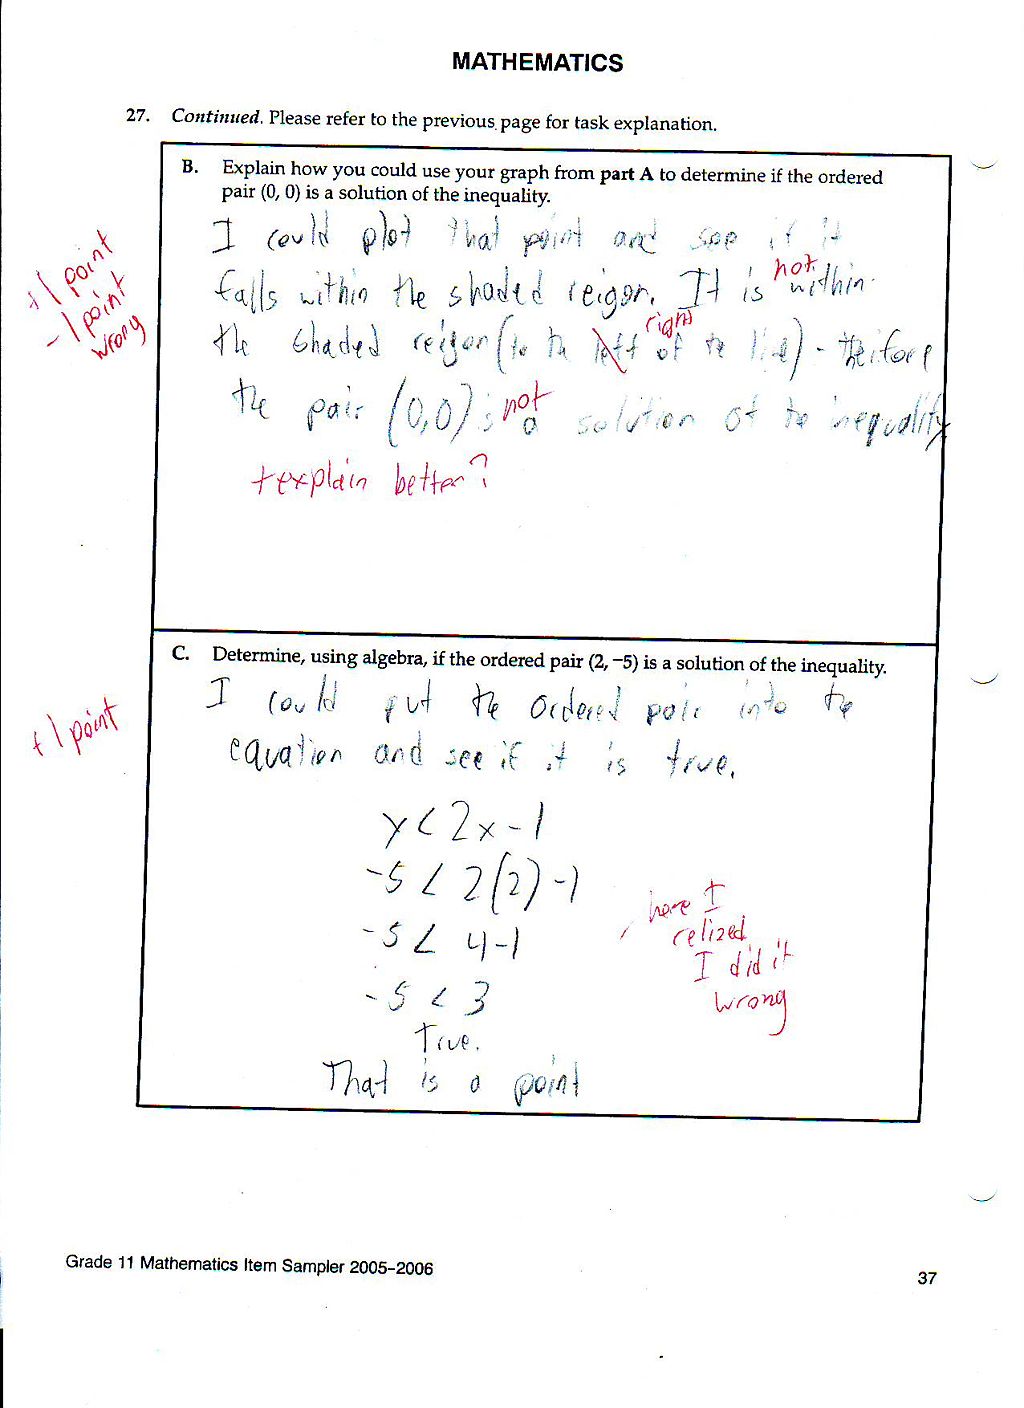 MATHEMATICS
27. Continued. Please refer to the previous page for task explanation.
B. Explain how you could use your graph from part A to determine if the ordered
pair (0, 0) is a solution of the inequality.
I could plot that point and see if it
+1 point
-1 point
wrong
not
falls within the shaded reigon. It is within
right
the shaded reigon (to the left of the line) - therefore
the pair (0,0) is not a solution of the inequality
+explain better?
C. Determine, using algebra, if the ordered pair (2, −5) is a solution of the inequality.
I could put the ordered pair into the
+1 point
equation and see if it is true.
y < 2x - 1
-5 < 2(2) - 1
-5 < 4 - 1
here I
relized
I did it
wrong
-5 < 3
True.
That is a point
Grade 11 Mathematics Item Sampler 2005–2006
37